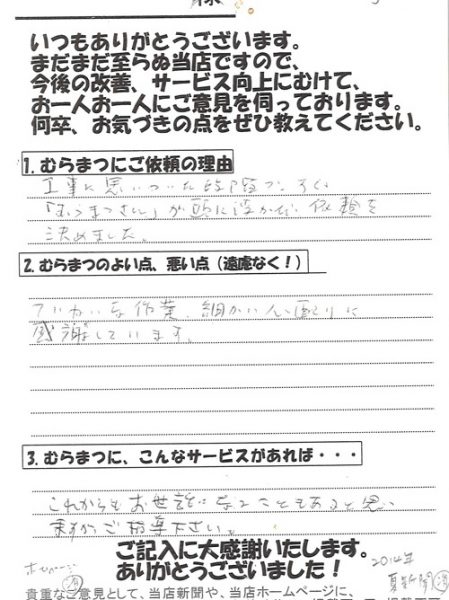 様
いつもありがとうございます。
まだまだ至らぬ当店ですので、
今後の改善、サービス向上にむけて、
お一人お一人にご意見を伺っております。
何卒、お気づきの点をぜひ教えてください。
1. むらまつにご依頼の理由
工事を思いついた段階で、すぐ
「むらまつさん」が頭に浮かび、依頼を
決めました。
2. むらまつのよい点、悪い点（遠慮なく！）
ていねいな作業、細かい心配りに
感謝しています。
3. むらまつに、こんなサービスがあれば・・・
これからもお世話になることもあると思い
ますがご指導下さい。
ご記入に大感謝いたします。
ありがとうございました！
ホームページ
済
2014年
夏 新聞 済
貴重なご意見として、当店新聞や、当店ホームページに、